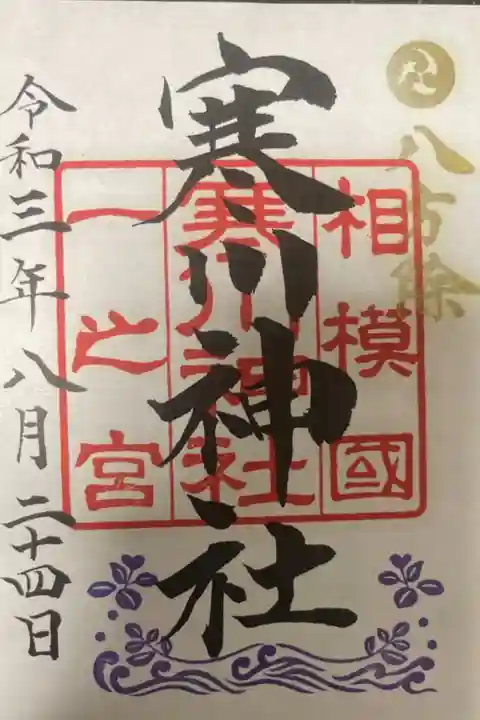 八方除
相模國
寒川神社
一之宮
寒川神社
令和三年八月二十四日